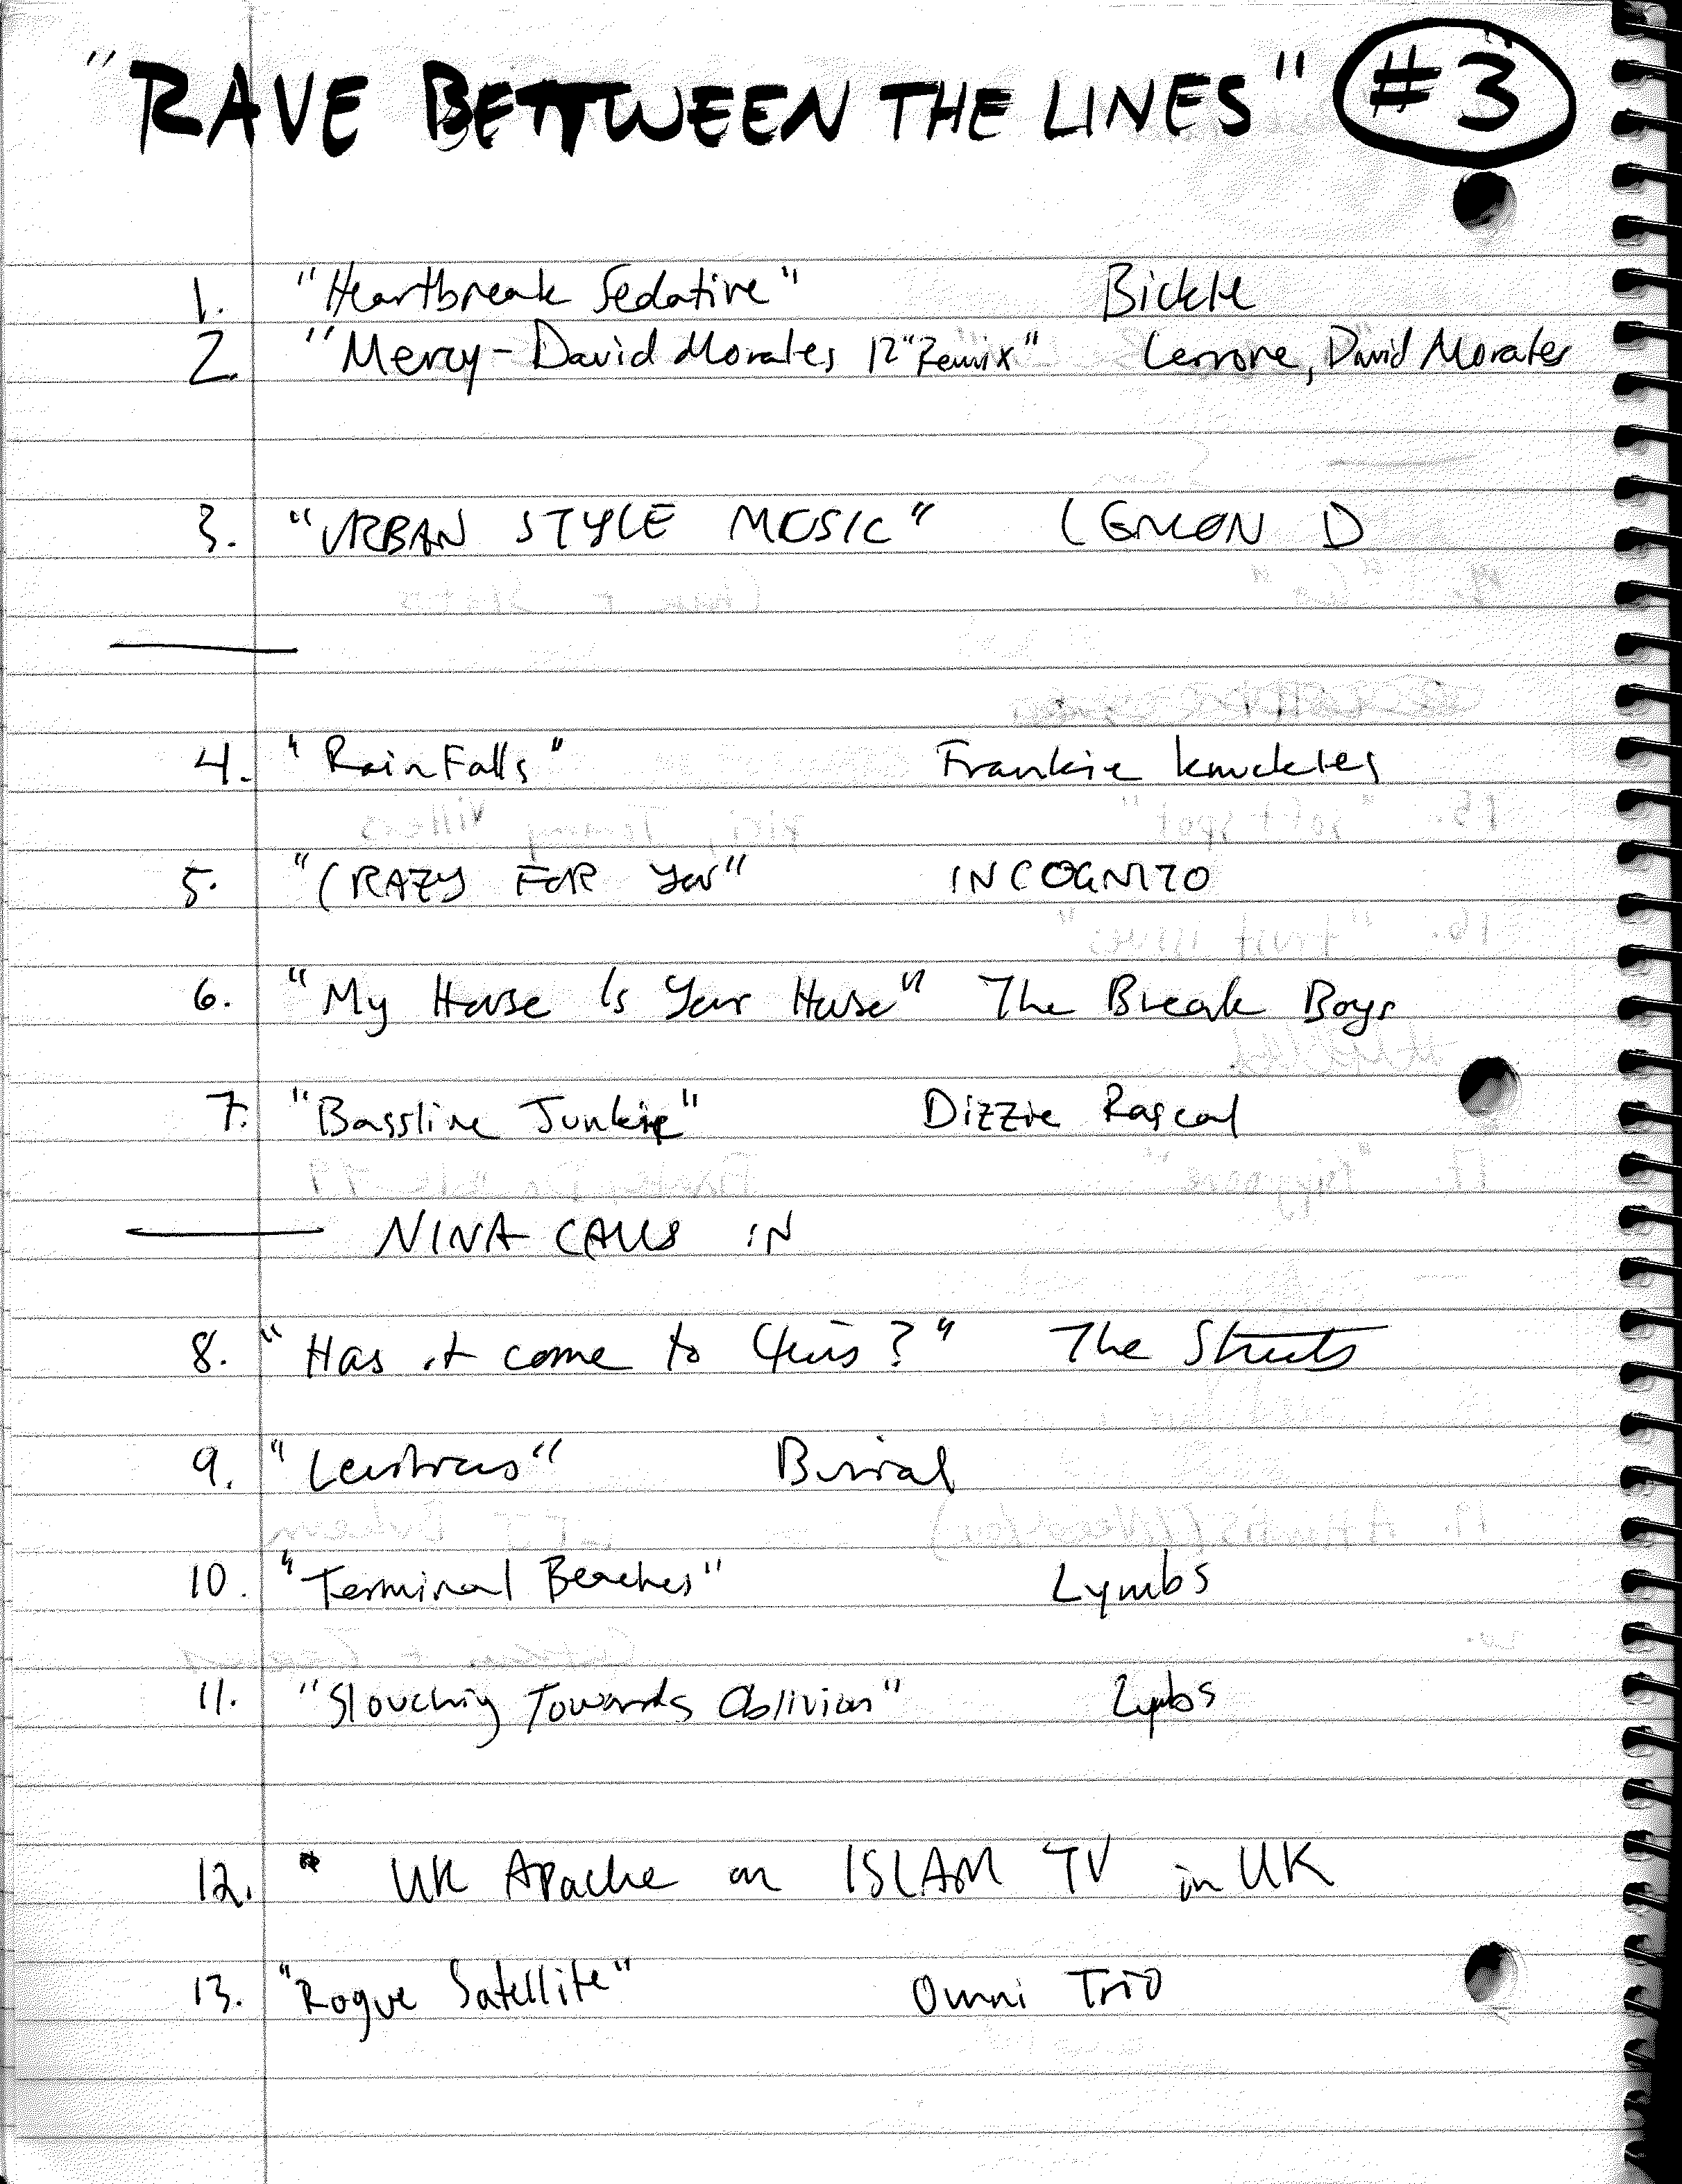 "RAVE BETWEEN THE LINES" #3
1. "Heartbreak Sedative" Bickle
2. "Mercy - David Morales 12" Remix" Cerrone, David Morales
3. "URBAN STYLE MUSIC" LEMON D
4. "Rain Falls" Frankie Knuckles
5. "CRAZY FOR YOU" INCOGNITO
6. "My House Is Your House" The Break Boys
7. "Bassline Junkie" Dizzie Rascal
NINA CALLS IN
8. "Has it come to this?" The Streets
9. Burial
10. "Terminal Beaches" Lymbs
11. "Slouching Towards Oblivion" Lymbs
12. * UK Apache on ISLAM TV in UK
13. "Rogue Satellite" Omni Trio